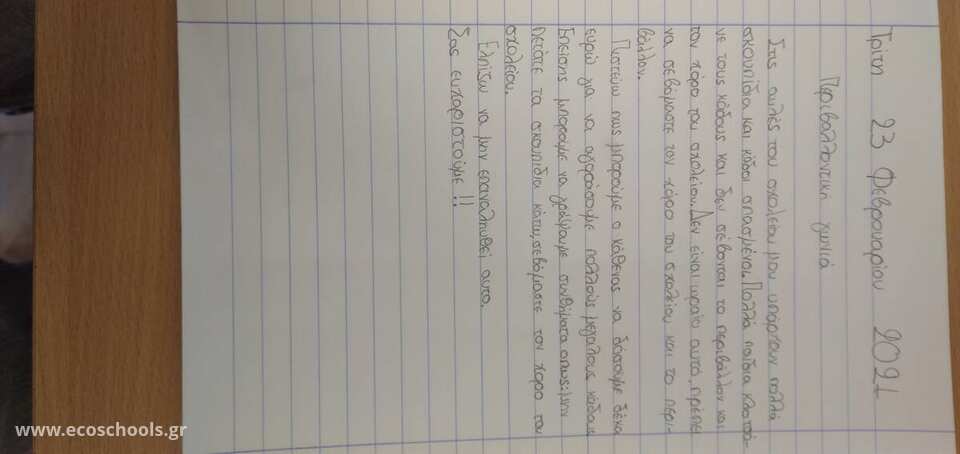 Τρίτη 23 Φεβρουαρίου 2021
Περιβαλλοντική γωνιά
Στις αυλές του σχολείου μου υπάρχουν πολλά
σκουπίδια και κάδοι σπασμένοι. Πολλά παιδιά κλοτσά-
νε τους κάδους και δεν σέβονται το περιβάλλον και
τον χώρο του σχολείου. Δεν είναι ωραίο αυτό, πρέπει
να σεβόμαστε τον χώρο του σχολείου και το περι-
βάλλον.
Πιστεύω πως μπορούμε ο κάθενας να δώσουμε δέκα
ευρώ για να αγοράσουμε πολλούς μεγάλους κάδους
Επείσης μπορούμε να γράψουμε συνθήματα οπως: μην
πετάτε τα σκουπίδια κάτω, σεβόμαστε τον χώρο του
σχολείου.
Ελπίζων να μην επαναληυθεί αυτο.
Σας ευχαριστούμε!!
www.ecoschools.gr